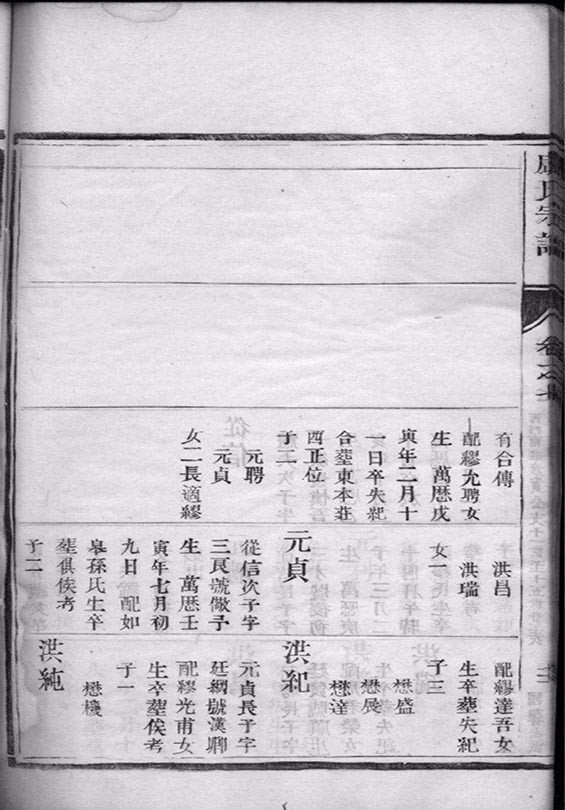 氏宗譜
卷之
有合傳
配繆允聘女
生 萬歷戊
寅年二月十
一日卒失紀
合塟東本莊
酉正位
子二
元聘
元貞
女二長適繆
洪昌
洪瑞
女一
元貞
從信次子字
三艮號儆予
生 萬歷壬
寅年七月初
九日 配如
皋孫氏生卒
塟俱俟考
子二
配繆達吾女
生卒塟失紀
子三
懋盛
懋展
懋達
洪紀
元貞長子字
廷綱號漢卿
配繆光甫女
生卒塟俟考
子一
懋機
洪純